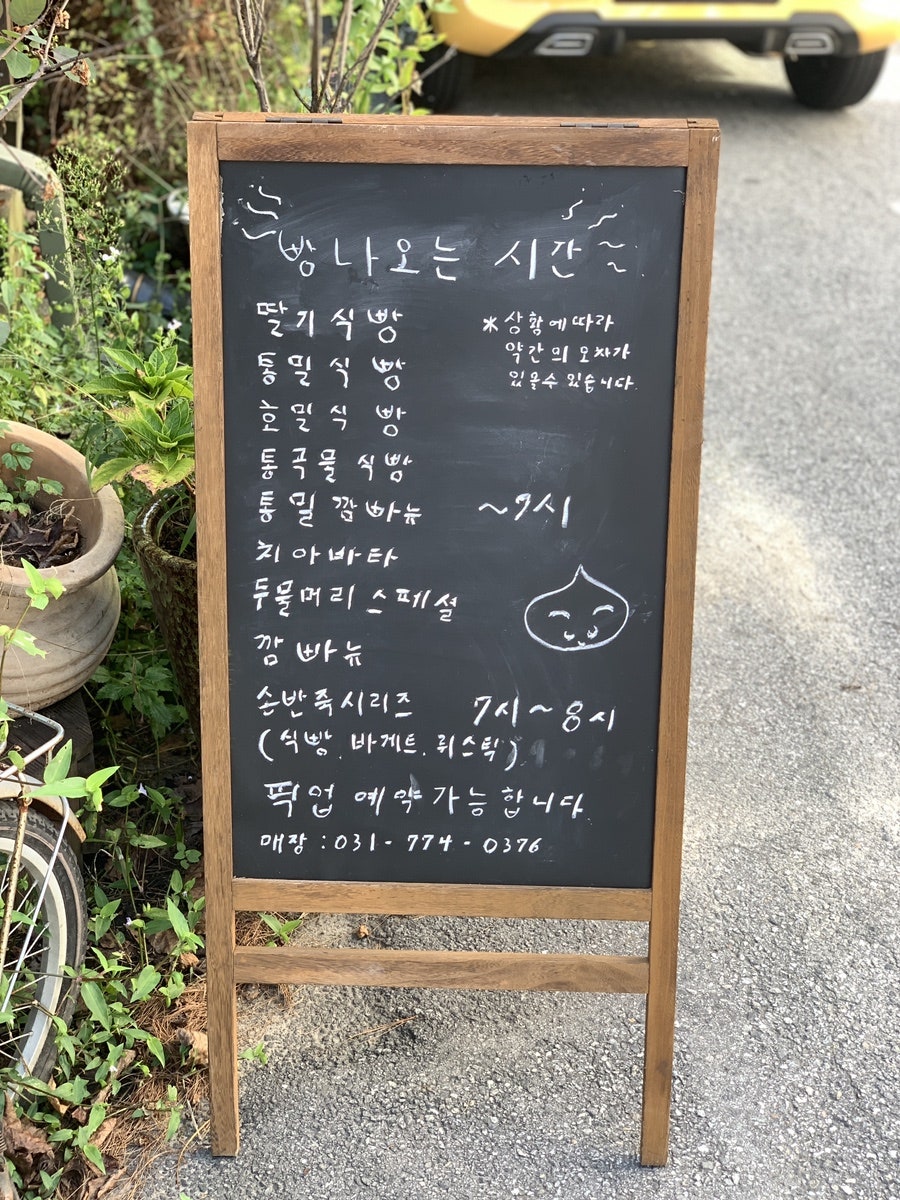 빵 나오는 시간
딸기식빵
* 상황에따라
약간의 오차가
있을수 있습니다.
통밀식빵
호밀식빵
통곡물 식빵
통밀 깜빠뉴 ~7시
치아바타
두물머리 스페셜
깜빠뉴
손반죽시리즈 7시~8시
(식빵, 바게트, 뤼스틱)
픽업 예약가능합니다
매장 : 031-774-0376